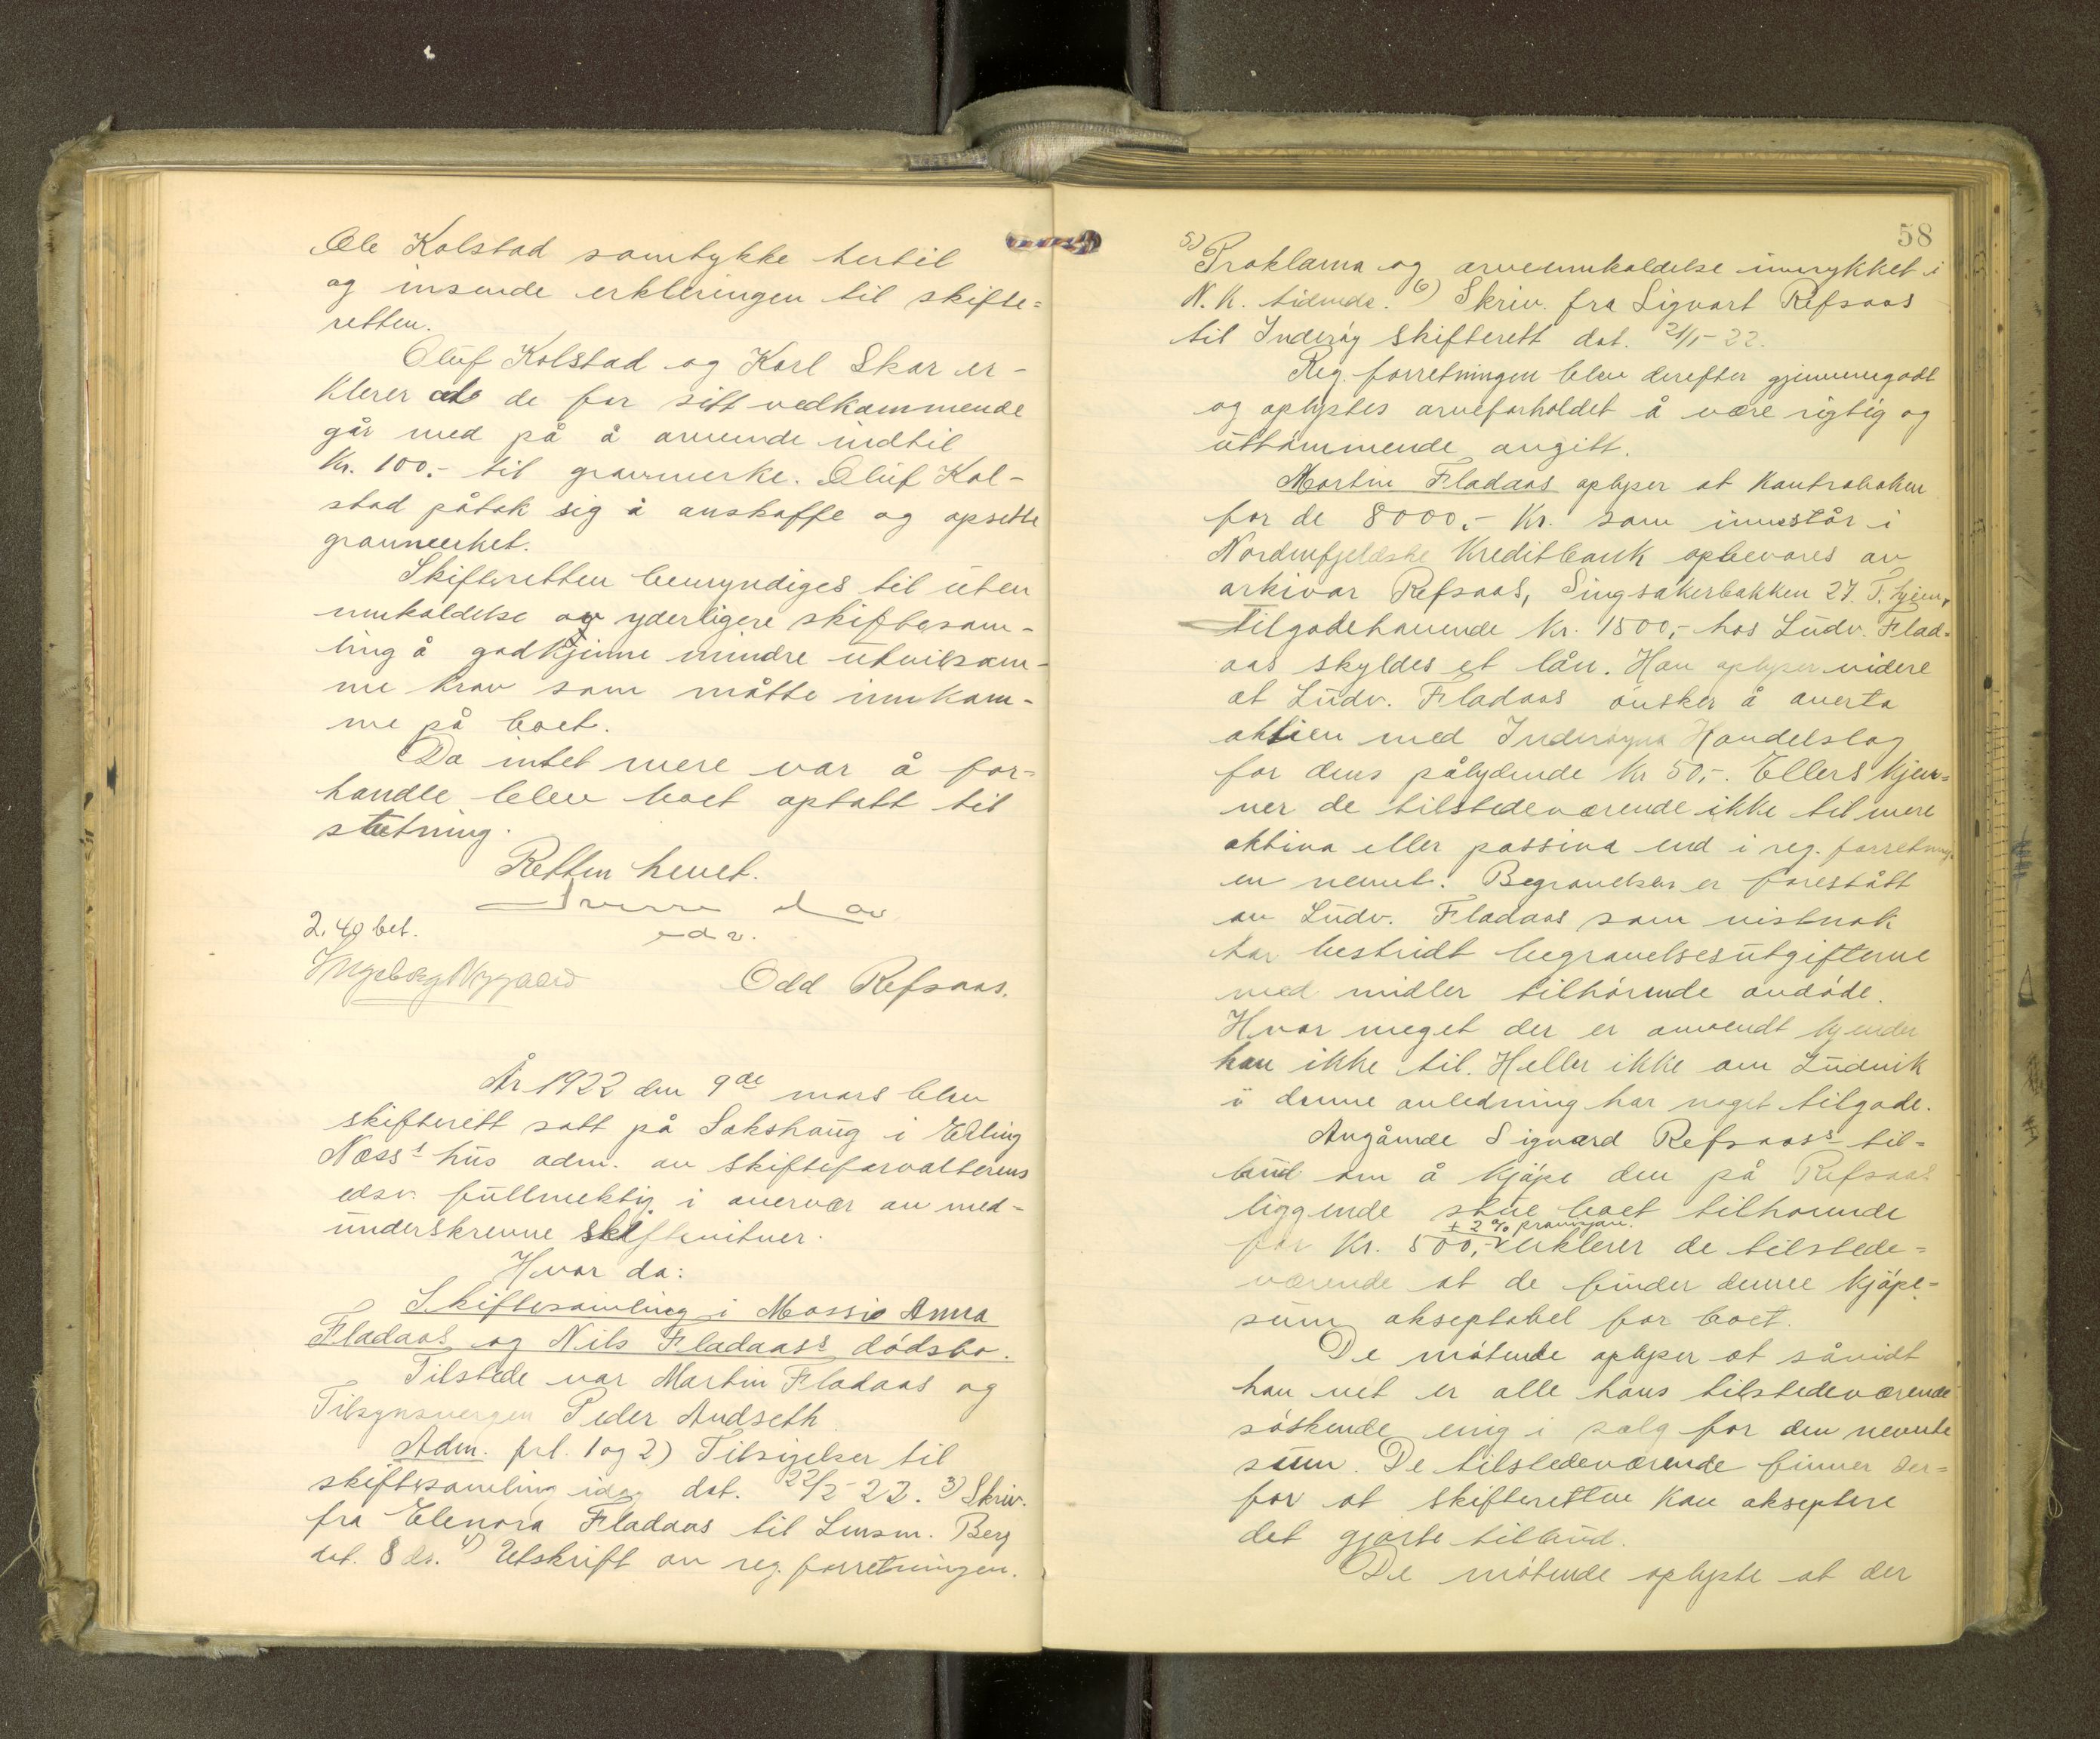 Ole Kolstad samtykke hertil
og insende erkleringen til skifte=
retten.
Oluf Kolstad og Karl Skar er-
klerer at de for sitt vedkommende
går med på å anvende indtil
Kr. 100.- til gravmerke. Oluf Kol-
stad påtok sig å anskaffe og opsette
gravmerket.
Skifteretten bemyndiges til uten
innkaldelse av yderligere skiftesam-
ling å godkjenne mindre utvilsom-
me krav som måtte innkom-
me på boet.
Da intet mere var å for-
handle blev boet optatt til
slutning.
Retten hevet.
Sverre
edv.
2.40 bet.
Ingeborg Nygaard
Odd Refsaas.
År 1922 den 9de mars blev
skifterett satt på Sakshaug i Erling
Næss's hus adm. av skifteforvalterens
edsv. fullmektig i overvær av med-
underskrevne skiftevitner.
Hvor da:
Skiftesamling i Massie Anna
Fladaas og Nils Fladaas's dödsbo.
Tilstede var Martin Fladaas og
Tilsynsvergen Peder Audseth.
Adm. frl. 1 og 2) Tilsigelser til
skiftesamling idag dat. 22/2-22. 3) Skriv.
fra Elenora Fladaas til Lensm. Berg
dat. 8 ds. 4) Utskrift av reg. forretningen.
58
5) Proklama og arveinnkaldelse innrykket i
N. K. tidende. 6) Skriv. fra Sigvart Refsaas
til Inderöy skifterett dat. 21/1-22.
Reg. forretningen blev derefter gjennemgådt
og oplystes arveforholdet å være rigtig og
uttömmende angitt.
Martin Fladaas oplyser at kontraboken
for de 8000,- kr. som innestår i
Nordenfjeldske Kreditbank opbevares av
arkivar Refsaas, Singsakerbakken 27. T.hjem.
Tilgodehavende kr. 1500,- hos Ludv. Flad-
aas skyldes et lån. Han oplyser videre
at Ludv. Fladaas önsker å overta
aktien med Inderöyna Handelslag
for dens pålydende kr 50,-. Ellers kjen=
ner de tilstedeværende ikke til mere
aktiva eller passiva end i reg. forretning-
en nevnt. Begravelsen er forestått
av Ludv. Fladaas som vistnok
har bestridt begravelsesutgifterne
med midler tilhörende avdöde.
Hvor meget der er anvendt kjender
han ikke til. Heller ikke om Ludvik
i denne anledning har noget tilgode.
Angående Sigvard Refsaas's til=
bud om å kjöpe den på Refsaas
liggende stue boet tilhörende
± 2 % provisjon.
for kr. 500,- erklerer de tilstede=
værende at de finder denne kjöpe-
sum akseptabel for boet.
De mötende oplyser at såvidt
han vet er alle hans tilstedeværende
söskende enig i salg for den nevnte
sum. De tilstedeværende finner der=
for at skifteretten kan akseptere
det gjorte tilbud.
De mötende oplyste at der